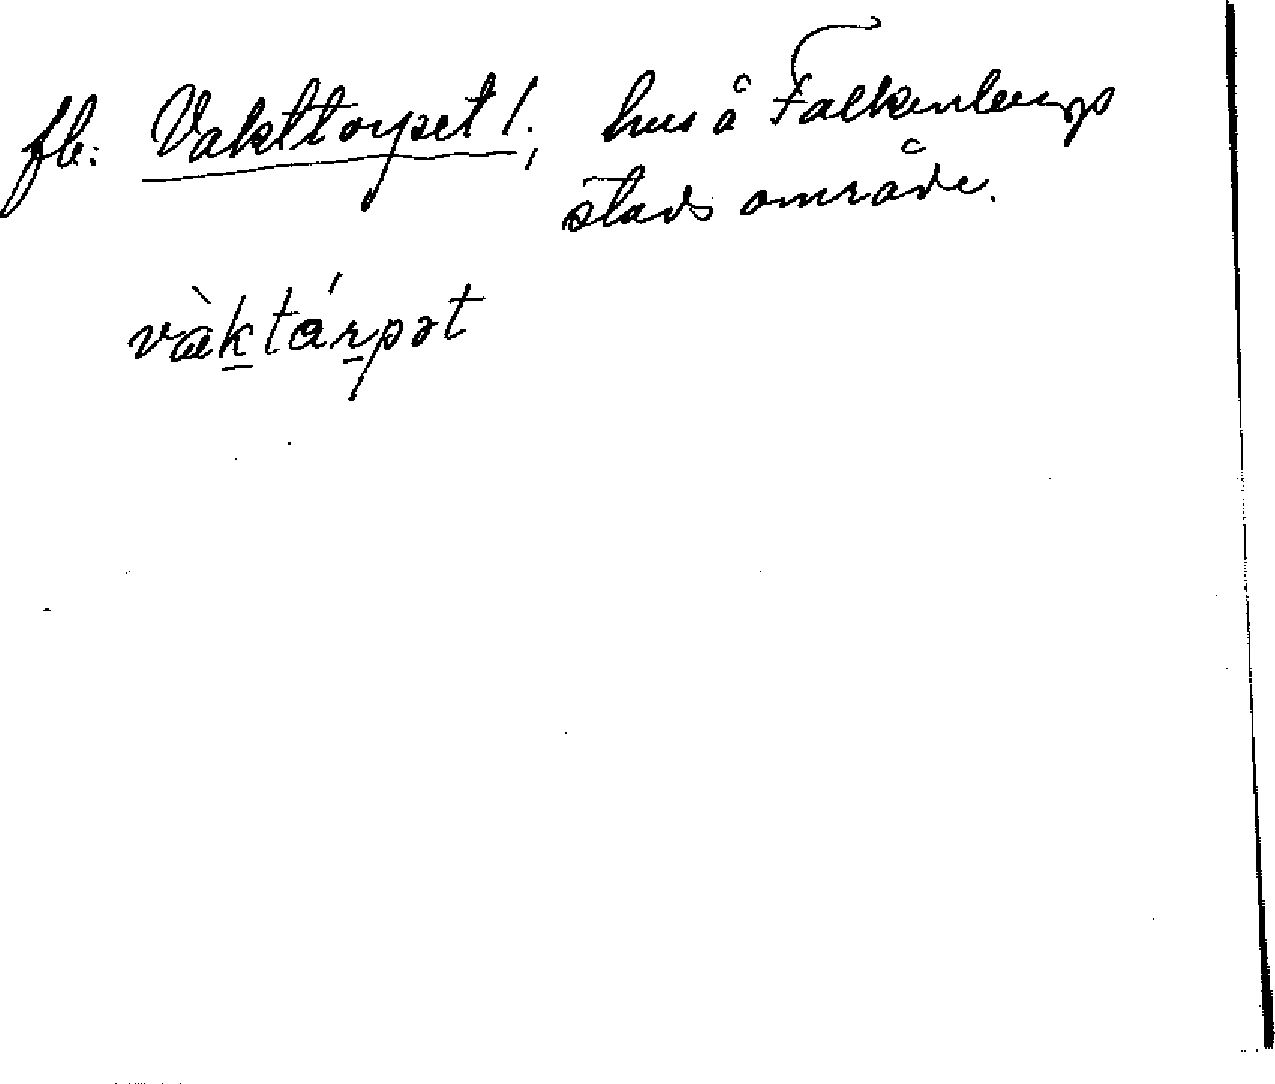 fb. Vakttorpet!; hus å Falkenbergs
stads område.
vàktárpət